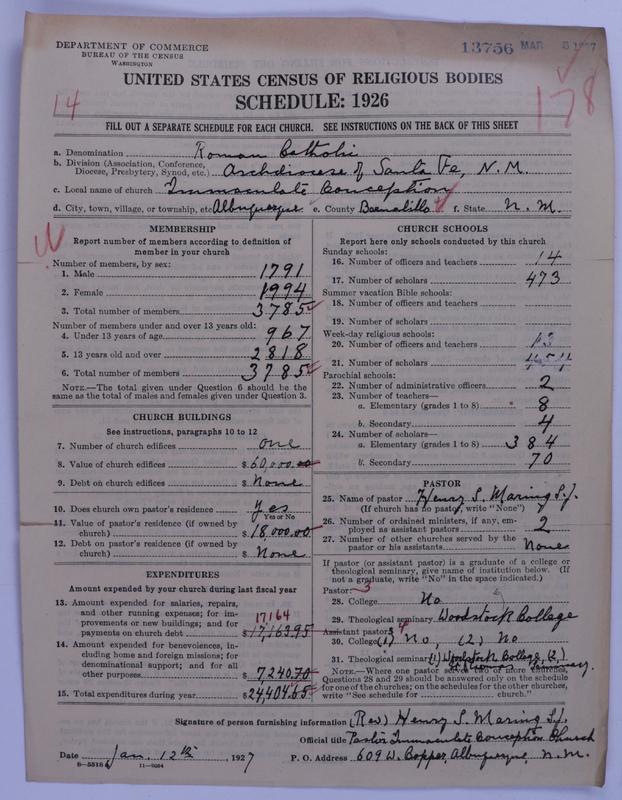 DEPARTMENT OF COMMERCE
BUREAU OF THE CENSUS
WASHINGTON
13756 MAR 5 1927
UNITED STATES CENSUS OF RELIGIOUS BODIES
SCHEDULE: 1926
14
178
FILL OUT A SEPARATE SCHEDULE FOR EACH CHURCH. SEE INSTRUCTIONS ON THE BACK OF THIS SHEET
a. Denomination Roman Catholic
b. Division (Association, Conference, Diocese, Presbytery, Synod, etc.) Archdiocese of Santa Fe, N.M.
c. Local name of church Immaculate Conception
d. City, town, village, or township, etc. Albuquerque e. County Bernalillo f. State N. M.
MEMBERSHIP
Report number of members according to definition of
member in your church
Number of members, by sex:
1. Male 1791
2. Female 1994
3. Total number of members 3785
Number of members under and over 13 years old:
4. Under 13 years of age 967
5. 13 years old and over 2818
6. Total number of members 3785
NOTE.—The total given under Question 6 should be
same as the total of males and females given under Question 3.
CHURCH BUILDINGS
See instructions, paragraphs 10 to 12
7. Number of church edifices one
8. Value of church edifices $ 60,000.00
9. Debt on church edifices $ None
10. Does church own pastor's residence? Yes
Yes or No
11. Value of pastor's residence (if owned by
church) $ 18,000.00
12. Debt on pastor's residence (if owned by
church) $ None
EXPENDITURES
Amount expended by your church during last fiscal year
13. Amount expended for salaries, repairs,
and other running expenses; for im-
provements or new buildings; and for
payments on church debt 17164 $ 17,163.95
14. Amount expended for benevolences, in-
cluding home and foreign missions; for
denominational support; and for all
other purposes $ 7,240.70
15. Total expenditures during year $ 24,404.65
CHURCH SCHOOLS
Report here only schools conducted by this church
Sunday schools:
16. Number of officers and teachers 14
17. Number of scholars 473
Summer vacation Bible schools:
18. Number of officers and teachers
19. Number of scholars
Week-day religious schools:
20. Number of officers and teachers 13
21. Number of scholars
Parochial schools:
22. Number of administrative officers 2
23. Number of teachers—
a. Elementary (grades 1 to 8) 8
b. Secondary 4
24. Number of scholars—
a. Elementary (grades 1 to 8) 384
b. Secondary 70
PASTOR
25. Name of pastor Henry S. Maring S.J.
(If church has no pastor, write "None")
26. Number of ordained ministers, if any, em-
ployed as assistant pastors 2
27. Number of other churches served by the
pastor or his assistants None
If pastor (or assistant pastor) is a graduate of a college or
theological seminary, give name of institution below. (If
not a graduate, write "No" in the space indicated.)
Pastor: 3
28. College No
29. Theological seminary Woodstock College
Assistant pastor: 4
30. College (1) No, (2) No
31. Theological seminary (1) Woodstock College, (2)
NOTE.—Where one pastor serves two or more churches,
Questions 28 and 29 should be answered only on the schedule
for one of the churches; on the schedules for the other churches,
write "See schedule for church."
Signature of person furnishing information (Rev) Henry S. Maring S.J.
Official title Pastor Immaculate Conception Church
Date Jan. 12th, 1927 P. O. Address 609 W. Copper, Albuquerque, N. M.
8—5518 11—9064